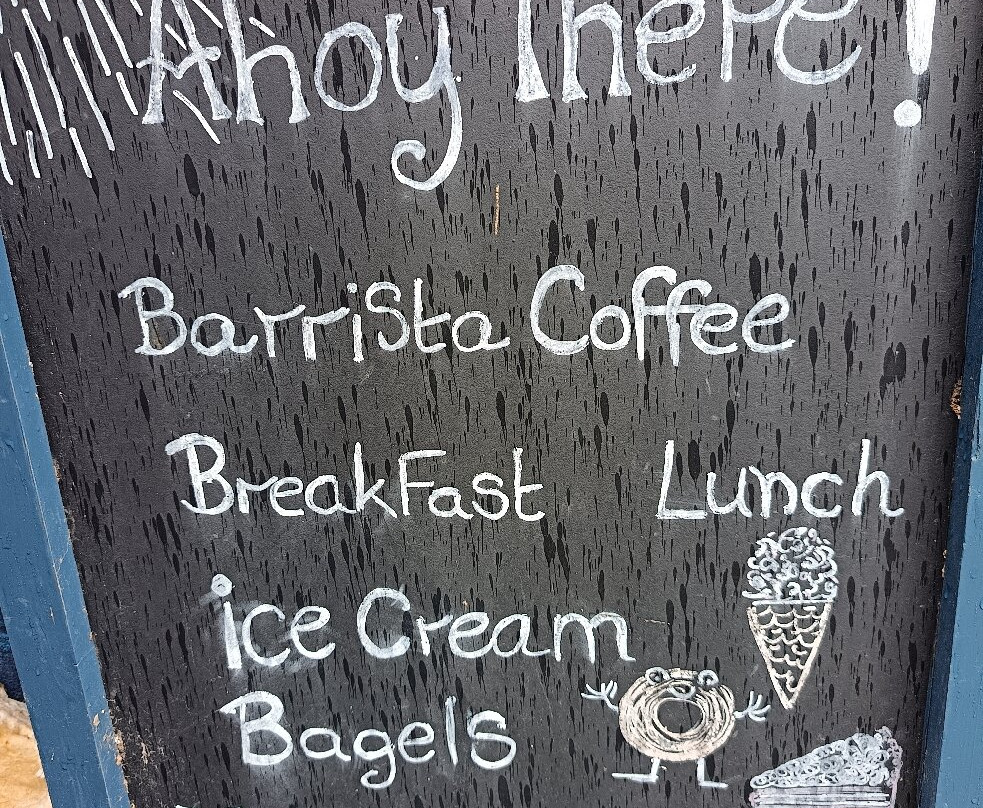 Ahoy There!
Barrista Coffee
BreakFast Lunch
ice Cream
Bagels